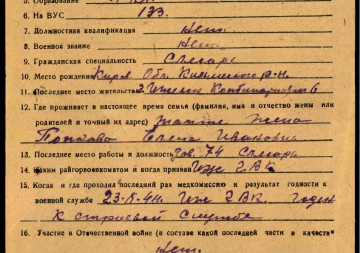 5. Образование
6. На ВУС 133.
7. Должностная квалификация Нет.
8. Военное звание Нет.
9. Гражданская специальность Слесарь
10. Место рождения Киров. Обл.
11. Последнее место жительства г. Ижевск 6
12. Где проживает в настоящее время семья (фамилия, имя и отчество жены или
родителей и точный их адрес) жена
Елена Ивановна
13. Последнее место работы и должность Зав. 74 Слесарь
14. Каким райгорвоенкоматом и когда призван Иж 2 ВК.
15. Когда и где проходил последний раз медкомиссию и результат годности к
военной службе 23-X-41. Иж 2 ВК. Годен
К строевой Службе
16. Участие в Отечественной войне (в составе какой последней части и в качеств
Нет.